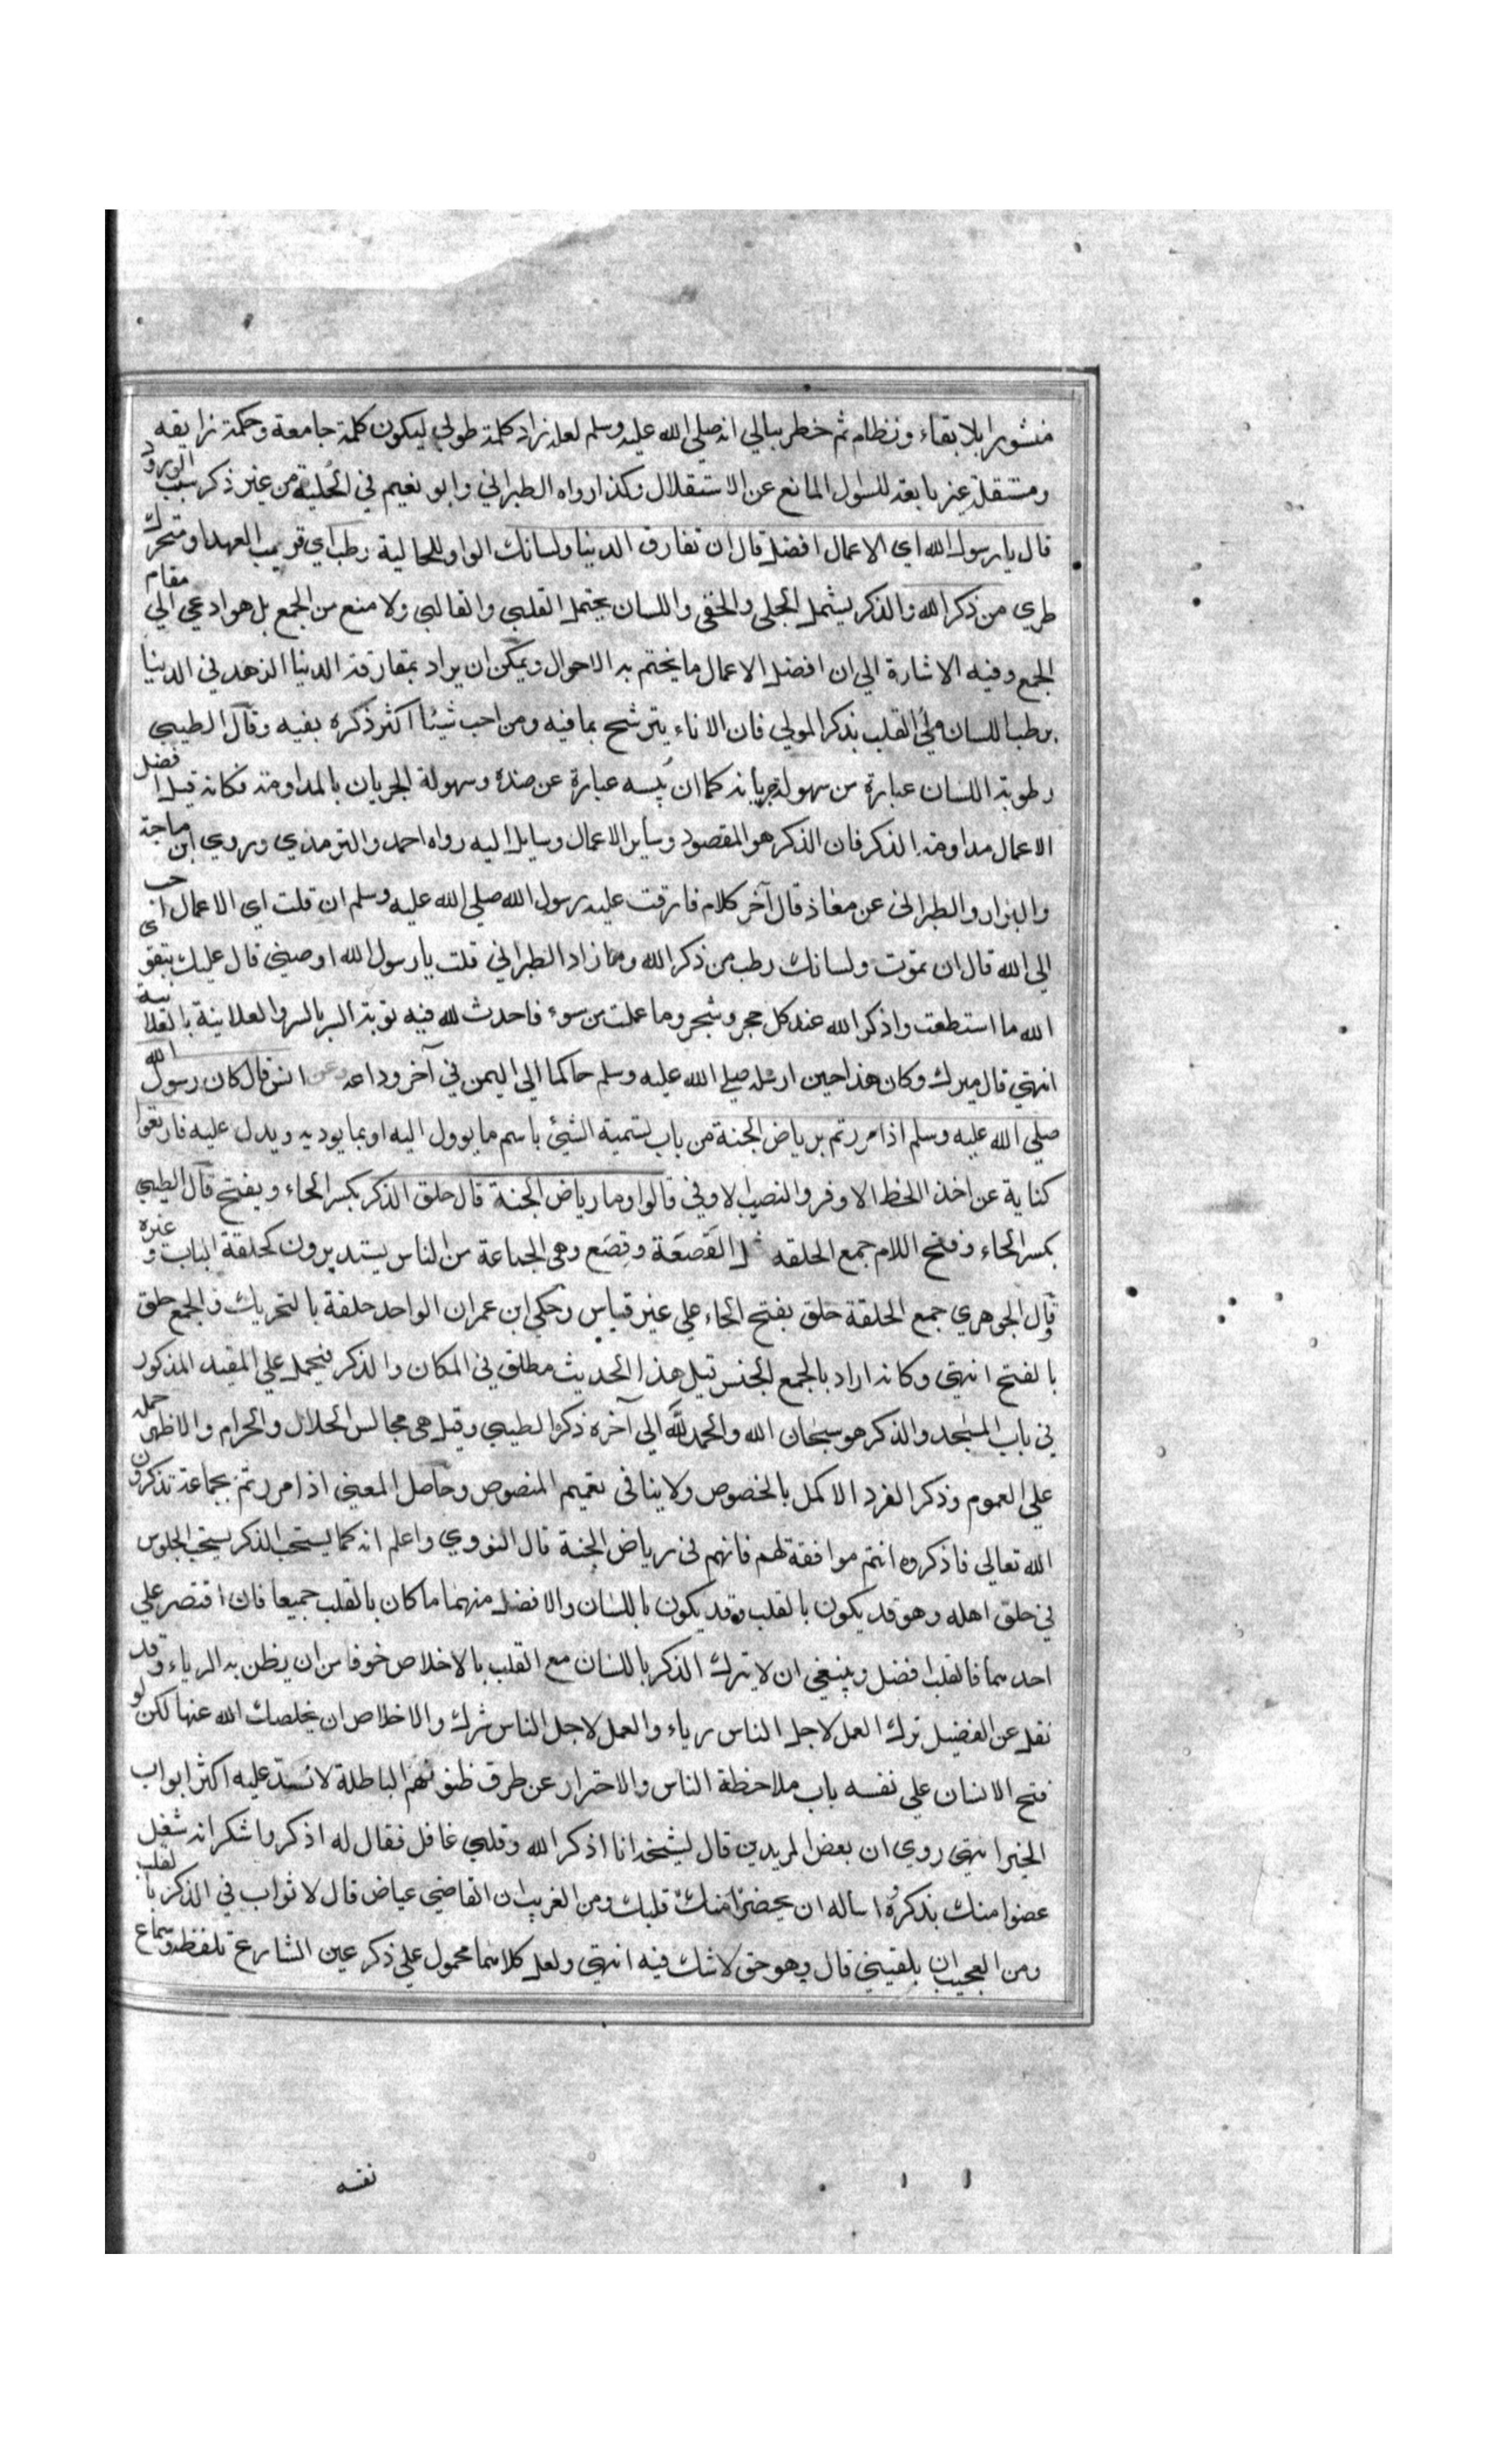 منثورا بلا بقاء ونظام ثم خطر ببالي انه صلي الله عليه وسلم لعله زاد كلمة طوبي ليكون كلمة جامعة وحكمة رايقه
ومستقلة غير تابعة للسؤل المانع عن الاستقلال وكذا رواه الطبراني وابو نعيم في الحلية من غير ذكر سبب الورود
قال يا رسول الله اي الاعمال افضل قال ان تفارق الدنيا ولسانك الواو للحالية رطب اي قريب العهد او متحرك
طري من ذكر الله والذكر يشمل الجلي والخفي واللسان يحتمل القلبي والقالبي ولا منع من الجمع بل هو ادعي الي مقام
الجمع وفيه الاشارة الي ان افضل الاعمال ما يختم به الاحوال ويمكن ان يراد بمفارقة الدنيا الزهد في الدنيا
برطب اللسان ملئ القلب بذكر المولي فان الاناء يترشح بما فيه ومن احب شيئا اكثر ذكره بفيه وقال الطيبي
رطوبة اللسان عبارة من سهولة جريانه كما ان يبسه عبارة عن ضده وسهولة الجريان بالمداومة فكانه قيل افضل
الاعمال مداومة الذكر فان الذكر هو المقصود وسائر الاعمال وسايل اليه رواه احمد والترمذي وروي ابن ماجة
والبزار والطبراني عن معاذ قال آخر كلام فارقت عليه رسول الله صلي الله عليه وسلم ان قلت اي الاعمال احب
الي الله قال ان تموت ولسانك رطب من ذكر الله ومما زاد الطبراني قلت يا رسول الله اوصيني قال عليك بتقوي
الله ما استطعت واذكر الله عند كل حجر وشجر وما عملت من سوء فاحدث لله فيه توبة السر بالسر والعلانية بالعلانية
انتهي قال ميرك وكان هذا حين ارسله صلي الله عليه وسلم حاكما الي اليمن في آخر وداعه وعن انس قال كان رسول الله
صلي الله عليه وسلم اذا مررتم برياض الجنة من باب تسمية الشيئ باسم ما يوول اليه او بما يوديه ويدل عليه فارتعوا
كناية عن اخذ الحظ الاوفر والنصيب الاوفي قالوا وما رياض الجنة قال حلق الذكر بكسر الحاء ويفتح قال الطيبي
بكسر الحاء وفتح اللام جمع الحلقه القصعة وقصع وهي الجماعة من الناس يستديرون كحلقة الباب وغيره
وقال الجوهري جمع الحلقة حلق بفتح الحاء علي غير قياس وحكي ابن عمران الواحد حلقة بالتحريك والجمع حلق
بالفتح انتهي وكانه اراد بالجمع الجنس قيل هذا الحديث مطلق في المكان والذكر فيحمل علي المقيد المذكور
في باب المسجد والذكر هو سبحان الله والحمد لله الي آخره ذكره الطيبي وقيل هي مجالس الحلال والحرام والاظهر حمله
علي العموم وذكر الفرد الاكمل بالخصوص ولا ينافي تعميم المنصوص وحاصل المعني اذا مررتم بجماعة تذكرون
الله تعالي فاذكروه انتم موافقة لهم فانهم في رياض الجنة قال النووي واعلم انه كما يستحب الذكر يستحب الجلوس
في حلق اهله وهو قد يكون بالقلب وقد يكون باللسان والافضل منهما ما كان بالقلب جميعا فان اقتصر علي
احدهما فالقلب افضل وينبغي ان لا يترك الذكر باللسان مع القلب بالاخلاص خوفا من ان يظن به الرياء وقد
نقل عن الفضيل ترك العمل لاجل الناس رياء والعمل لاجل الناس شرك والاخلاص ان يخلصك الله عنها لكن لو
فتح الانسان علي نفسه باب ملاحظة الناس والاحتراز عن طرق ظنونهم الباطلة لانسد عليه اكثر ابواب
الخير انتهي روي ان بعض المريدين قال لشيخه انا اذكر الله وقلبي غافل فقال له اذكر واشكر انه شغل
عضوا منك بذكره واساله ان يحضر قلبك ومن الغريب ان القاضي عياض قال لا ثواب في الذكر بالقلب
ومن العجيب ان بلقيني قال وهو حق لا شك فيه انتهي ولعل كلامهما محمول علي ذكر عين الشارع تلفظه وسماع
نفسه